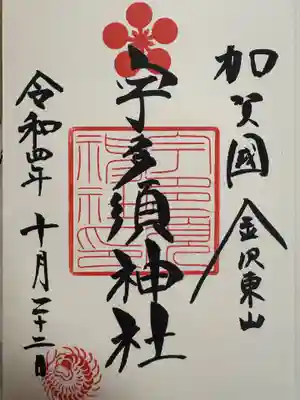 加賀國
金沢東山
宇多須神社
令和四年十月二十二日